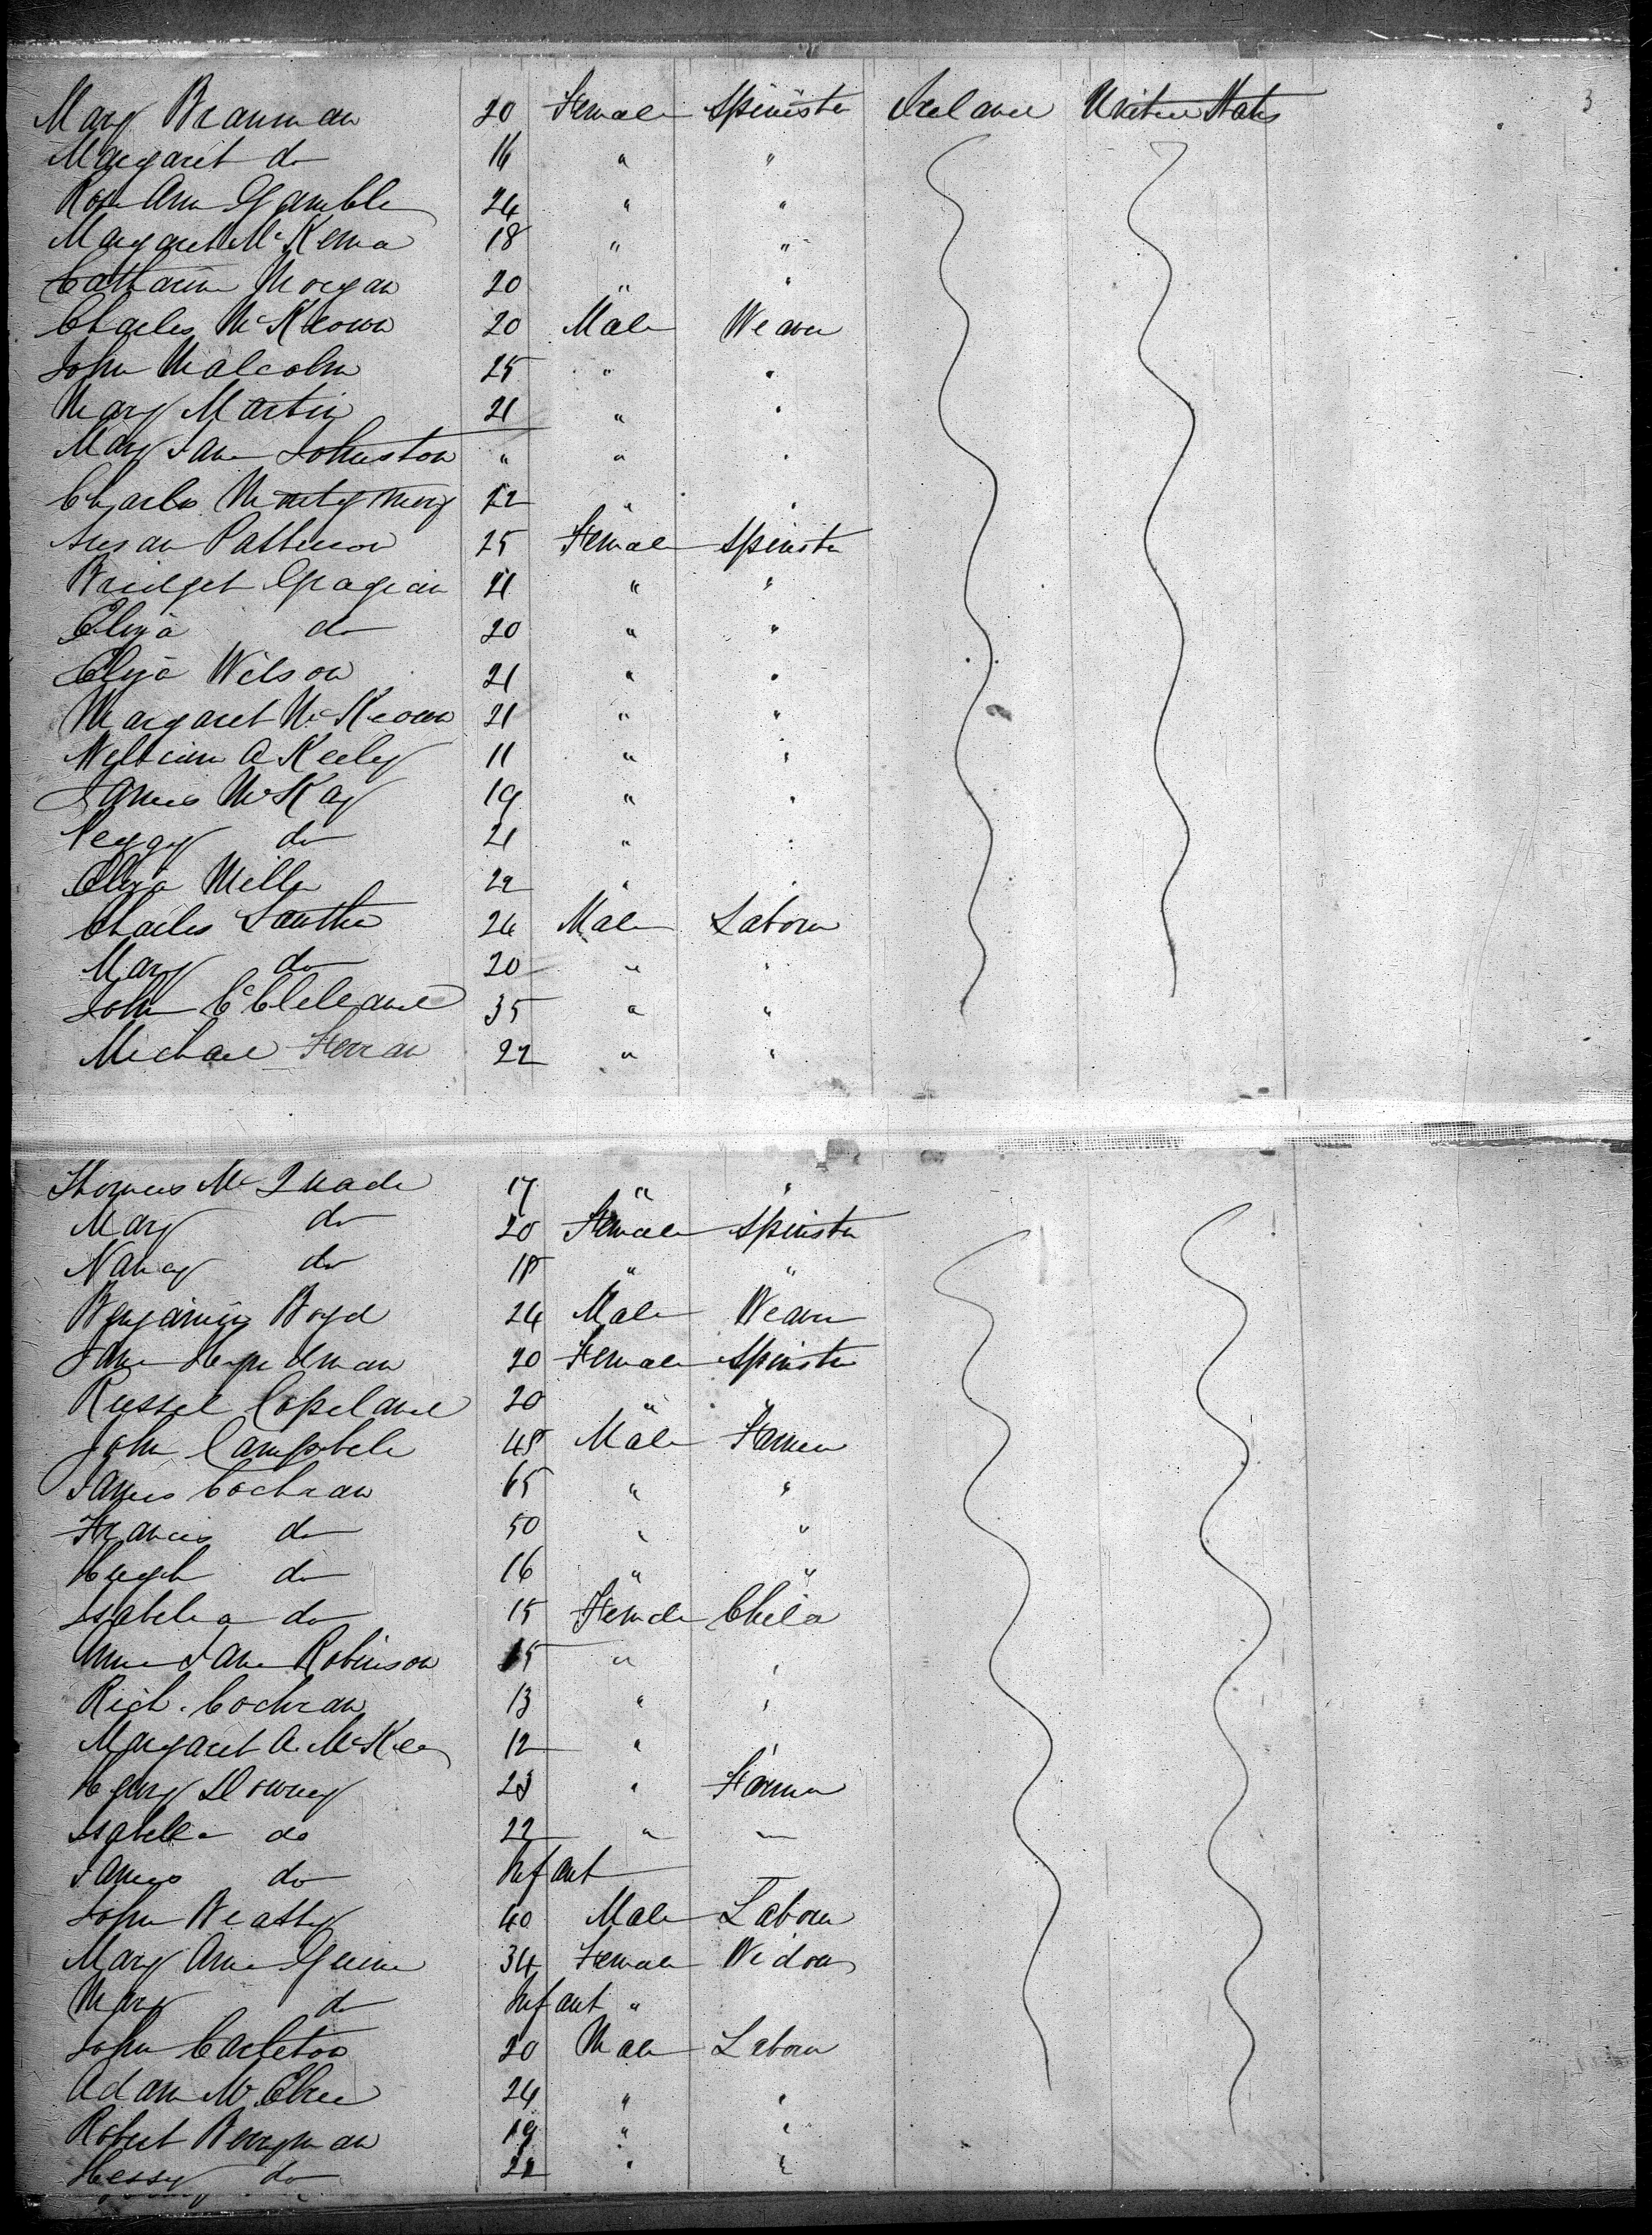 3
Mary Brannan 20 Female Spinster Ireland United States
Margaret do 16 " "
Rose Ann Gamble 24 " "
Margaret McKenna 18 " "
Catharine Morgan 20 " "
Charles McKeown 20 Male Weaver
John Malcolm 25 " "
Mary Martin 21 " "
Mary Jane Johnston " " "
Charles Montgomery 22 " "
Susan Patterson 25 Female Spinster
Bridget 21 " "
Eliza do 20 " "
Eliza Wilson 21 " "
Margaret McKeown 21 " "
William A Keely 11 " "
James McKay 19 " "
Peggy do 21 " "
Eliza Mills 22 " "
Charles 24 Male Labourer
Mary do 20 " "
John 35 " "
Michael 22 " "
Thomas McQuade 17 " "
Mary do 20 Female Spinster
Nancy do 18 " "
Benjamin Boyd 24 Male Weaver
Jane 20 Female Spinster
Russel Copeland 20 " "
John Campbell 45 Male Farmer
James Cochran 65 " "
Francis do 50 " "
Hugh do 16 " "
Isabella do 15 Female Child
Anne Jane Robinson 15 " "
Rich. Cochran 13 " "
Margaret A. McKee 12 " "
Henry Downey 23 " Farmer
Isabella do 22 " —
James do Infant —
John Beatty 40 Male Labourer
Mary Ann 34 Female Widow
Mary do Infant "
John Carleton 20 Male Labourer
Adam McElree 24 " "
Robert Berryman 19 " "
Hessy do 22 " "